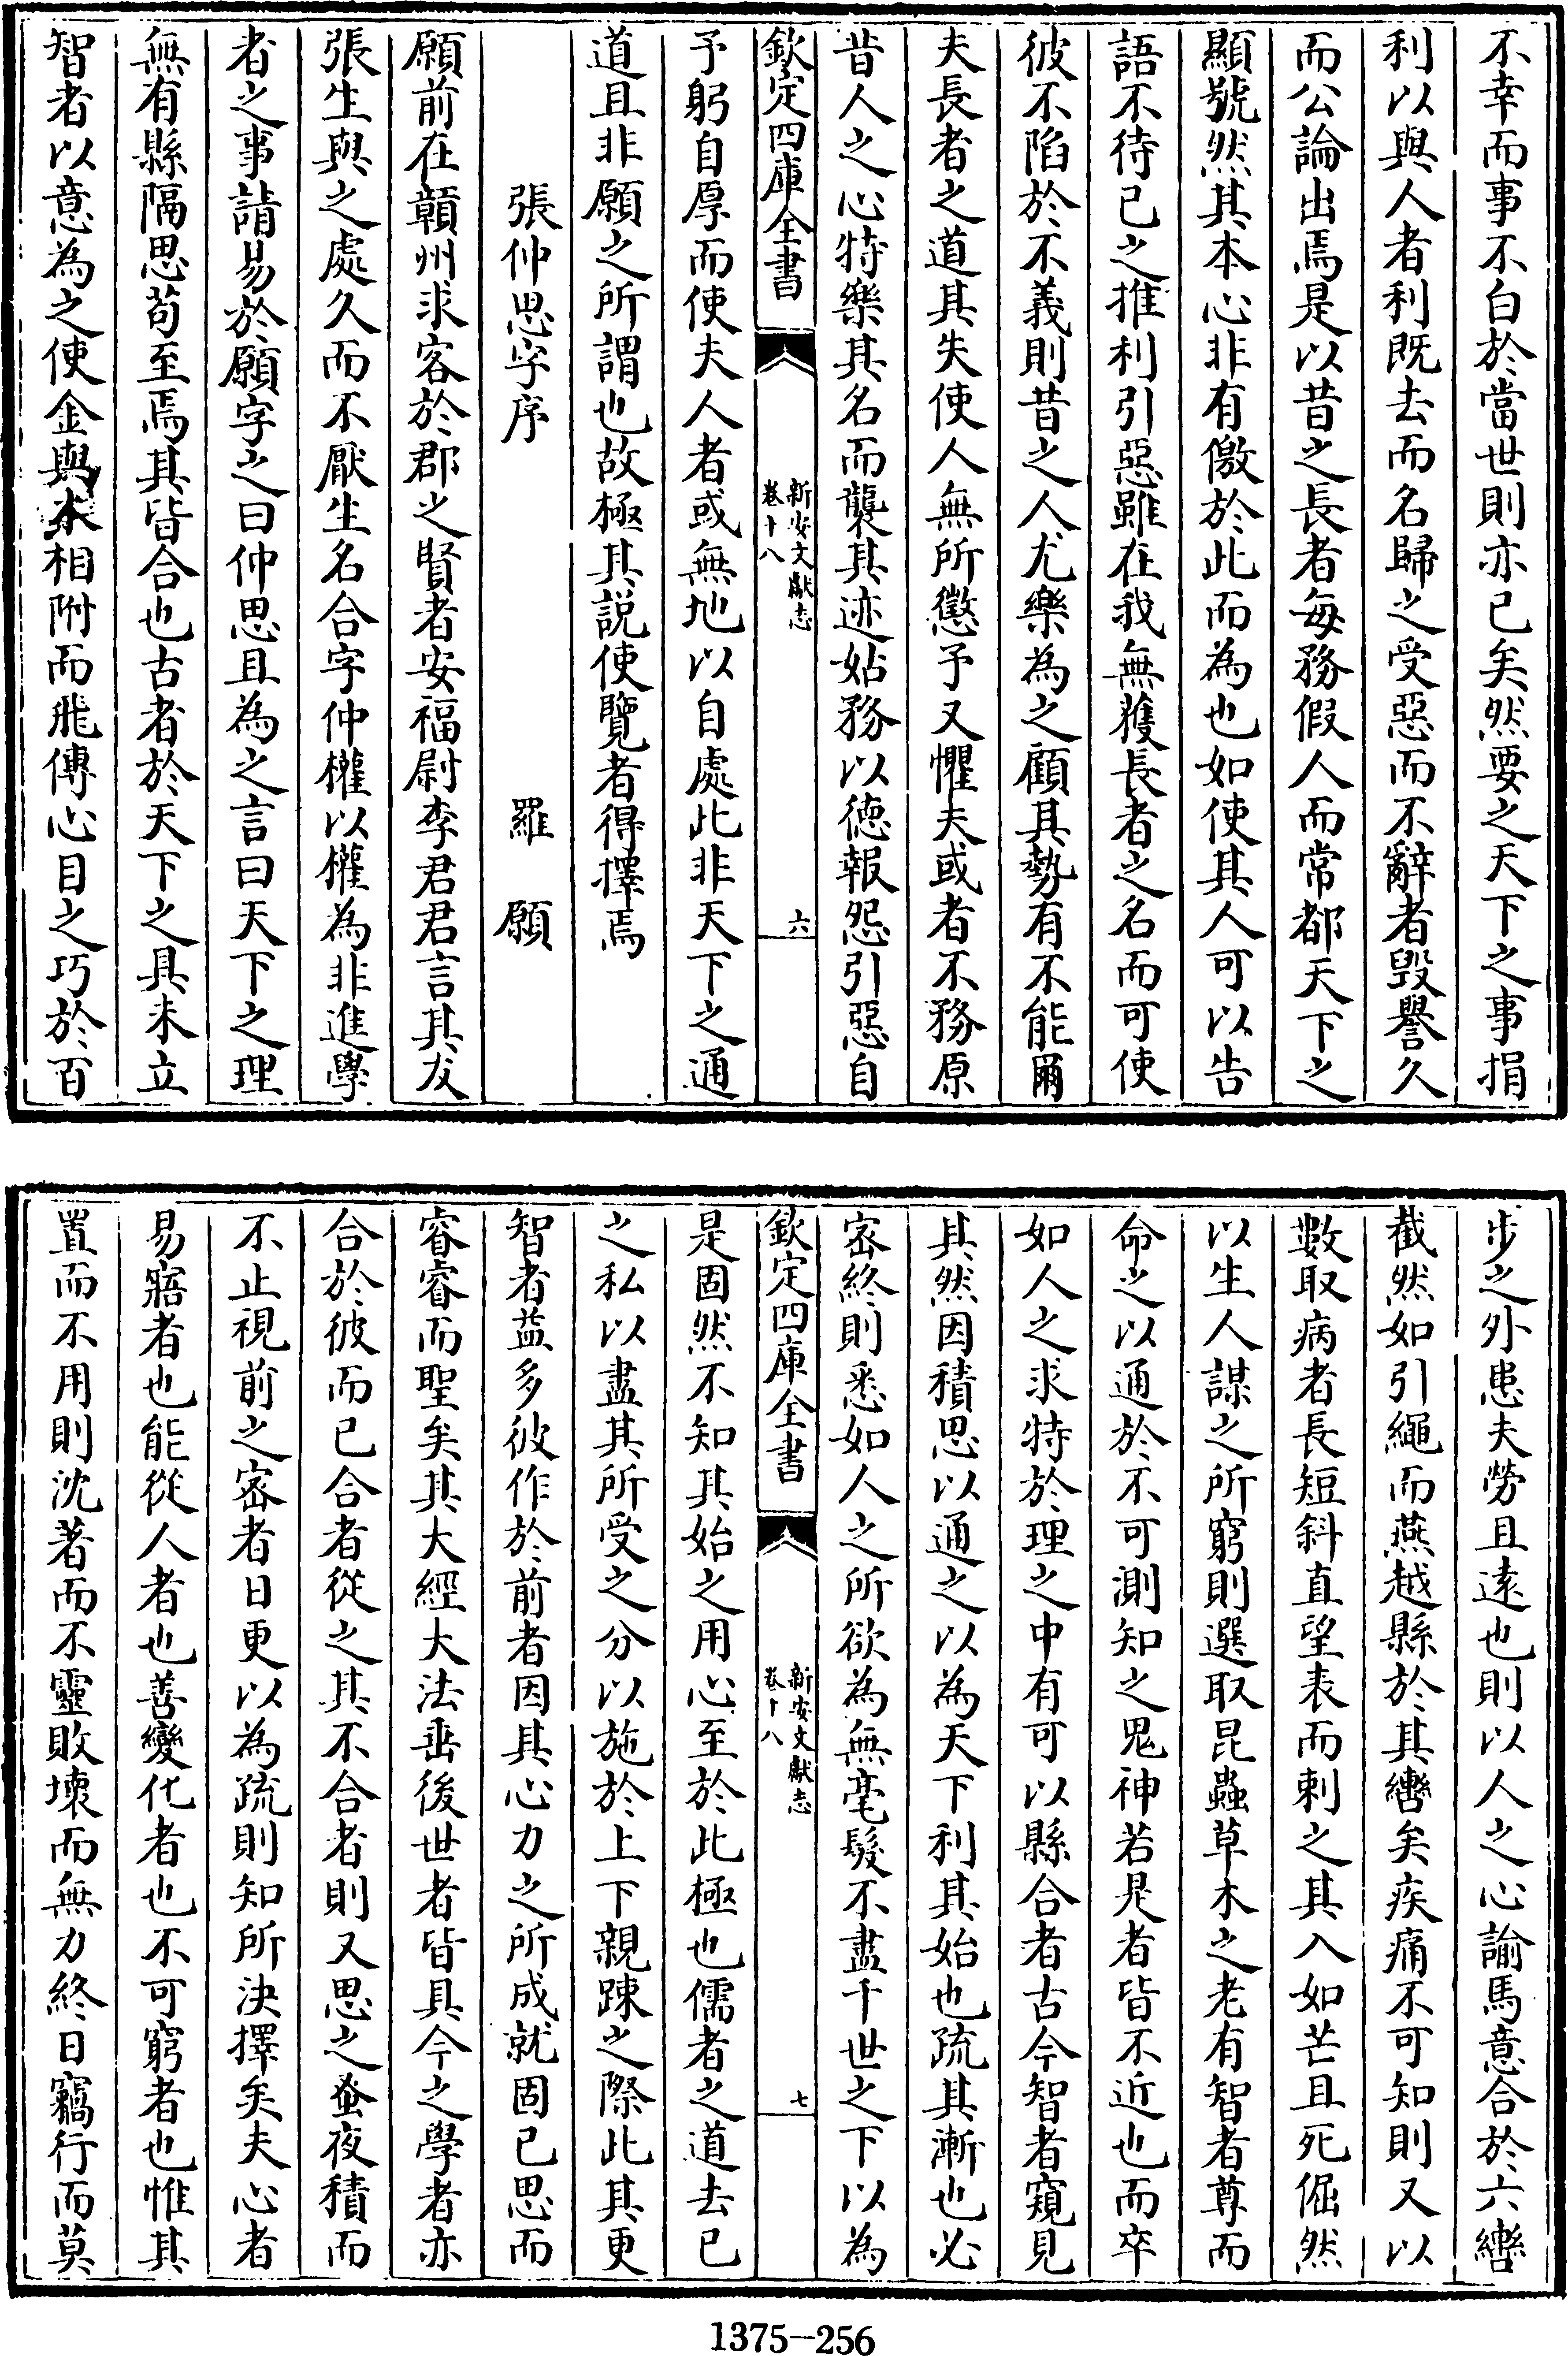 不幸而事不白於當世則亦已矣然要之天下之事捐
利以與人者利既去而名歸之受惡而不辭者毀譽久
而公論出焉是以昔之長者每務假人而常都天下之
顯號然其本心非有儌於此而為也如使其人可以告
語不待已之推利引惡雖在我無獲長者之名而可使
彼不陷於不義則昔之人尤樂為之顧其勢有不能爾
夫長者之道其失使人無所懲予又懼夫或者不務原
昔人之心特樂其名而襲其迹姑務以徳報怨引惡自
欽定四庫全書
新安文獻志
卷十八
六
予躬自厚而使夫人者或無地以自處此非天下之通
道且非願之所謂也故極其説使覽者得擇焉
張仲思字序
羅願
願前在贛州求客於郡之賢者安福尉李君君言其友
張生與之處久而不厭生名合字仲權以權為非進學
者之事請易於願字之曰仲思且為之言曰天下之理
無有縣隔思苟至焉其皆合也古者於天下之具未立
智者以意為之使金與木相附而飛傳心目之巧於百
步之外患夫勞且逺也則以人之心諭馬意合於六轡
截然如引繩而燕越縣於其轡矣疾痛不可知則又以
數取病者長短斜直望表而刺之其入如芒且死倔然
以生人謀之所窮則選取昆蟲草木之老有智者尊而
命之以通於不可測知之鬼神若是者皆不近也而卒
如人之求特於理之中有可以縣合者古今智者窺見
其然因積思以通之以為天下利其始也疏其漸也必
宻終則悉如人之所欲為無毫髮不盡千世之下以為
欽定四庫全書
新安文獻志
卷十八
七
是固然不知其始之用心至於此極也儒者之道去已
之私以盡其所受之分以施於上下親踈之際此其更
智者益多彼作於前者因其心力之所成就固已思而
睿睿而聖矣其大經大法垂後世者皆具今之學者亦
合於彼而已合者從之其不合者則又思之蚤夜積而
不止視前之宻者日更以為疏則知所決擇矣夫心者
易寤者也能從人者也善變化者也不可窮者也惟其
置而不用則沈著而不靈敗壞而無力終日竊行而莫
1375-256